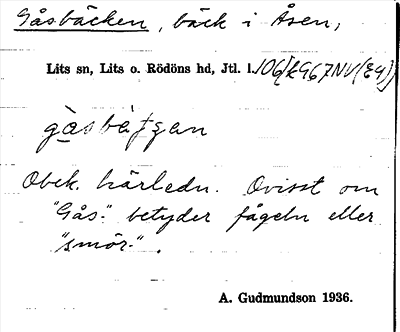 Gåsbäcken, bäck i Åsen,
Lits sn, Lits o. Rödöns hd, Jtl. l.
gàsbàtʒan
Obek. härledn. Ovisst om
"Gås-" betyder fågeln eller
"smör-".
A. Gudmundson 1936.